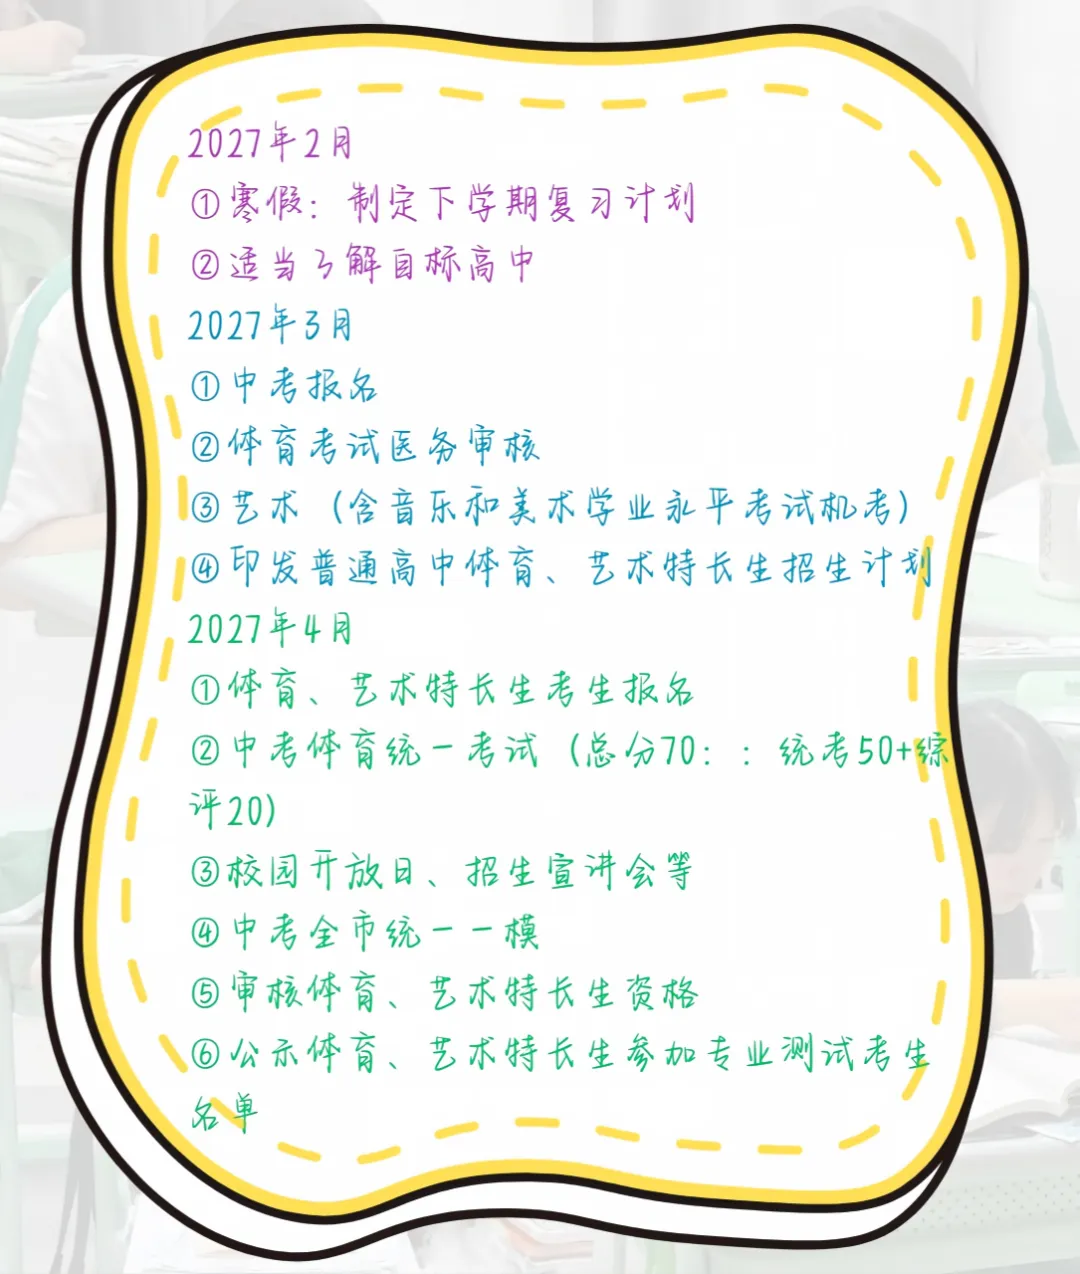 2027年2月
①寒假：制定下学期复习计划
②适当了解目标高中
2027年3月
①中考报名
②体育考试医务审核
③艺术（含音乐和美术学业永平考试机考）
④印发普通高中体育、艺术特长生招生计划
2027年4月
①体育、艺术特长生考生报名
②中考体育统一考试（总分70：：统考50+综
评20）
③校园开放日、招生宣讲会等
④中考全市统一一模
⑤审核体育、艺术特长生资格
⑥公示体育、艺术特长生参加专业测试考生
名单